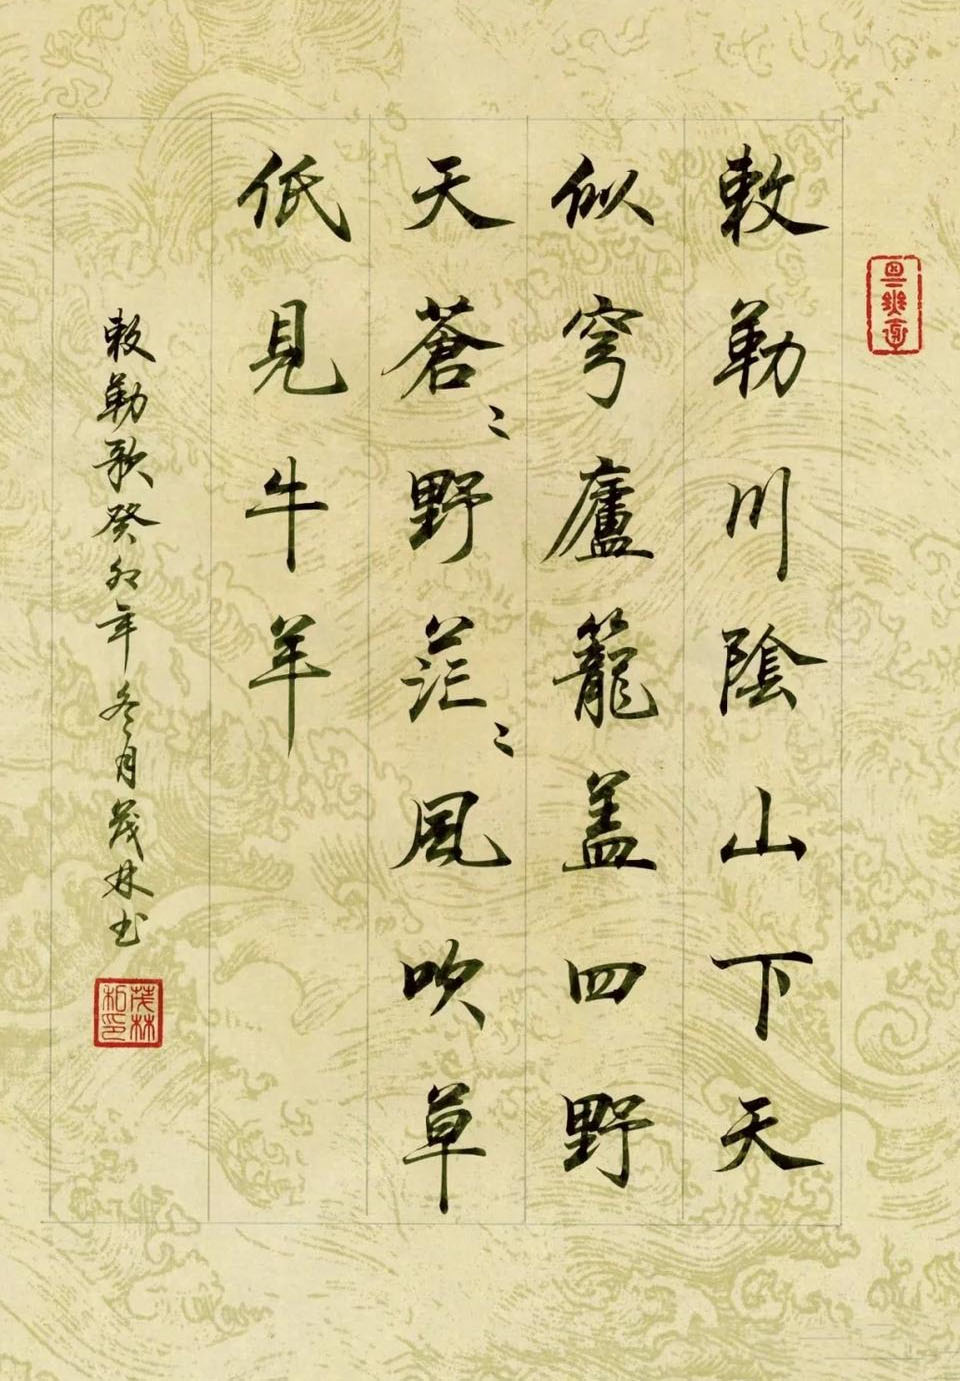 敕勒川陰山下天
似穹廬籠蓋四野
天蒼〻野茫〻風吹草
低見牛羊
敕勒歌癸卯年冬月茂林书
茂林
和印